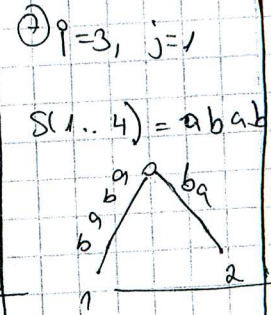 ⑦ i=3, j=1
S(1..4) = abab
a b a b
b a
1
2